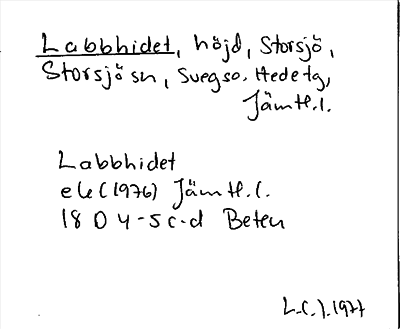 Labbhidet, höjd, Storsjö,
Storsjö sn, Svegs o. Hede tg,
Jämtl.l.
Labbhidet
ek (1976) Jämtl.l.
18 D 4-5 c-d Beten
L.C.J. 1977